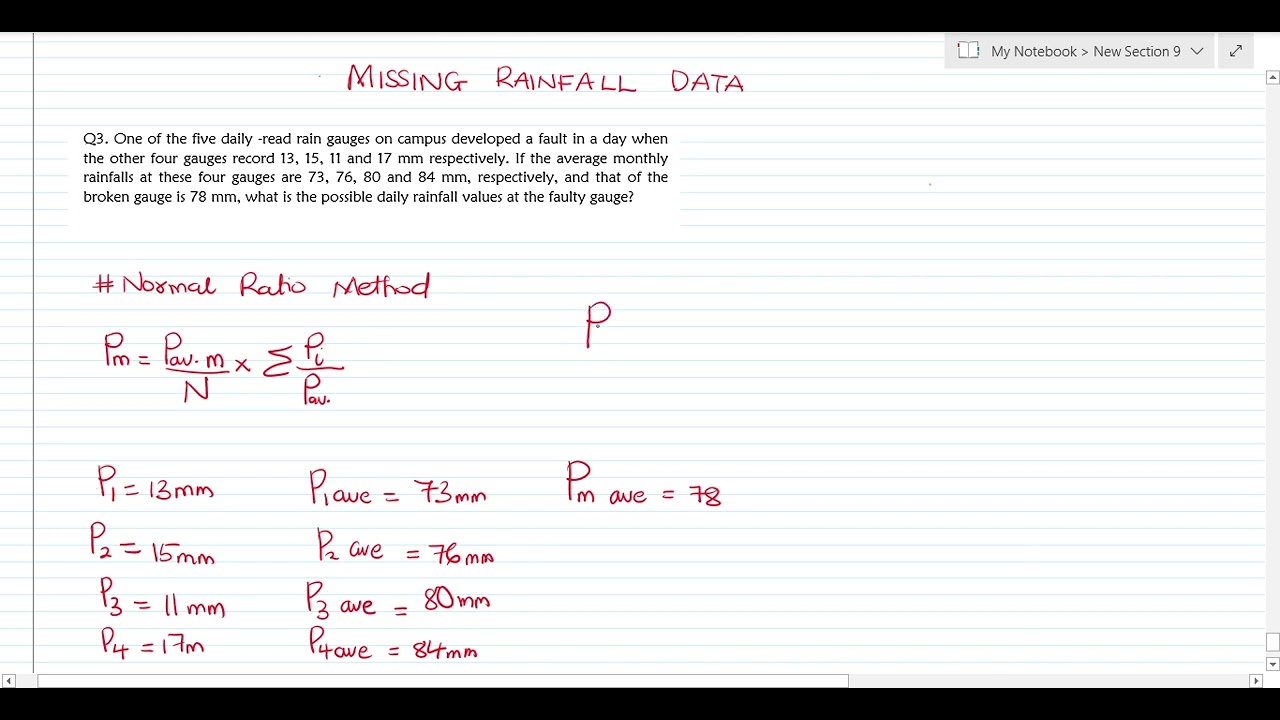 My Notebook > New Section 9
MISSING RAINFALL DATA
Q3. One of the five daily -read rain gauges on campus developed a fault in a day when
the other four gauges record 13, 15, 11 and 17 mm respectively. If the average monthly
rainfalls at these four gauges are 73, 76, 80 and 84 mm, respectively, and that of the
broken gauge is 78 mm, what is the possible daily rainfall values at the faulty gauge?
# Normal Ratio Method
Pm = Pav.m / N × Σ Pi / Pav.
P
P1 = 13mm P1 ave = 73mm Pm ave = 78
P2 = 15mm P2 ave = 76mm
P3 = 11mm P3 ave = 80mm
P4 = 17m P4 ave = 84mm